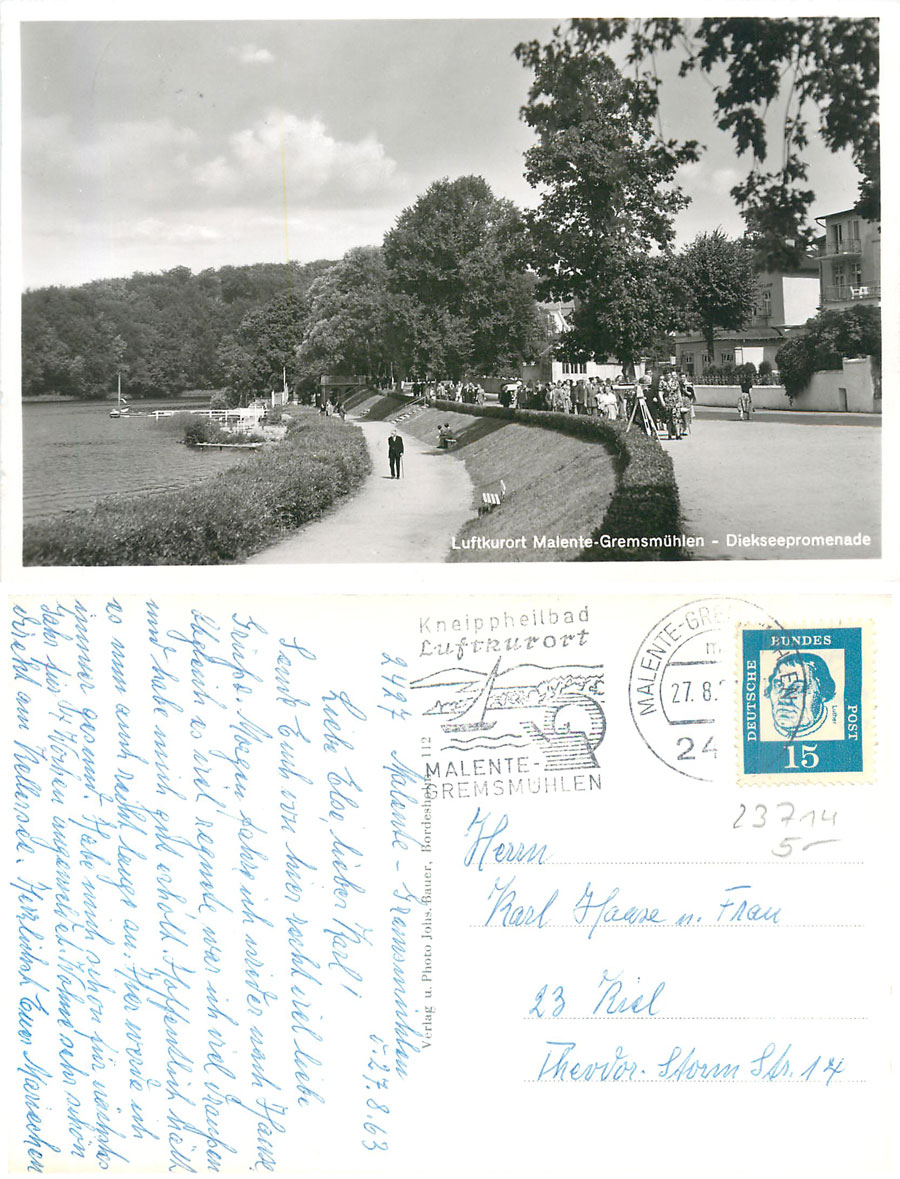 Luftkurort Malente-Gremsmühlen - Diekseepromenade
Kneippheilbad
Luftkurort
MALENTE-
GREMSMÜHLEN
MALENTE-GRE HLEN
27.8.
24
DEUTSCHE BUNDES POST
Luther
15
23714
5-
Herrn
Karl Haase u. Frau
23 Kiel
Theodor-Storm Str. 14
Verlag u. Photo Johs. Bauer, Bordesholm 112
2427 Malente-Gremsmühlen
d. 27.8.63
Liebe Else lieber Karl!
Sende Euch von hier recht viel liebe
Grüße. Morgen fahre ich wieder nach Hause
Obgleich es viel regnete war ich viel draußen
und habe mich gut erholt. Hoffentlich hält
es nun auch recht lange an. Hier werde ich
immer gesund. Habe mich schon für nächstes
Jahr für Wochen angemeldet. Wohne sehr schön
direkt am Kellersee. Herzlichst Euer Mariechen